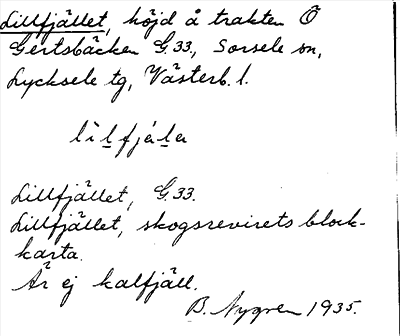 Lillfjället, höjd å trakten Ö
Gertsbäcken G.33., Sorsele sn,
Lycksele tg, Västerb. l.
lìlfjäla
Lillfjället, G.33.
Lillfjället, skogsrevirets block-
karta.
Är ej kalfjäll.
B. Nygren 1935.